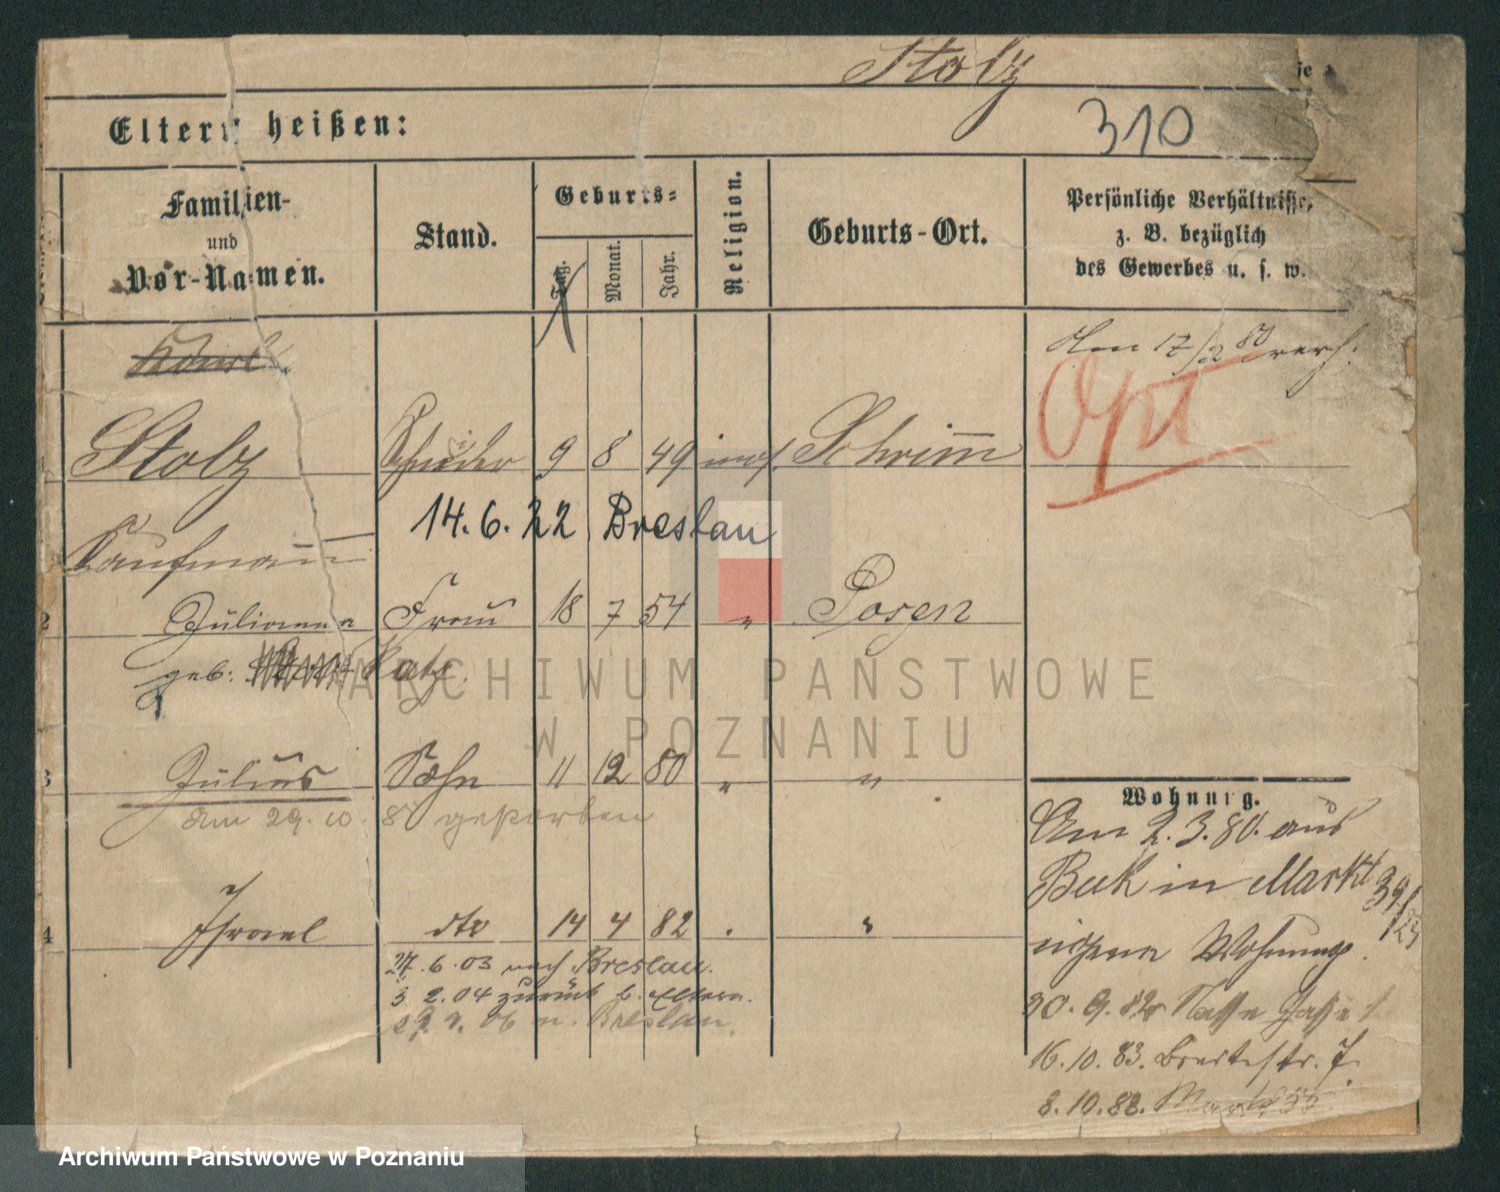 Stolz
310
Eltern heißen:
Familien-
und
Vor-Namen.
Stand.
Geburts-
Tag.
Monat.
Jahr.
Religion.
Geburts-Ort.
Persönliche Verhältnisse,
z. B. bezüglich
des Gewerbes u. s. w.
Am 17/2 80 verh.
Opt
1 Stolz Schneider 9 8 49 mos. Schrimm
14.6.22 Breslau
Kaufmann
2 Julianna Frau 18 7 54 " Posen
geb: Katz.
3 Julius Sohn 11 12 80 " "
am 29. 10. 8 gestorben
4 Israel dto 14 4 82 " "
27.6.03 nach Breslau.
3 2.04 zurück b. Eltern.
06 n. Breslau.
Wohnung.
Am 2.3.80. aus
Buk in Markt 39/
Wohnung.
30.9.82 Nasse Gasse
16.10.83. Breitestr. 7.
8.10.88. Markt 55.
ARCHIWUM PAŃSTWOWE
W POZNANIU
Archiwum Państwowe w Poznaniu